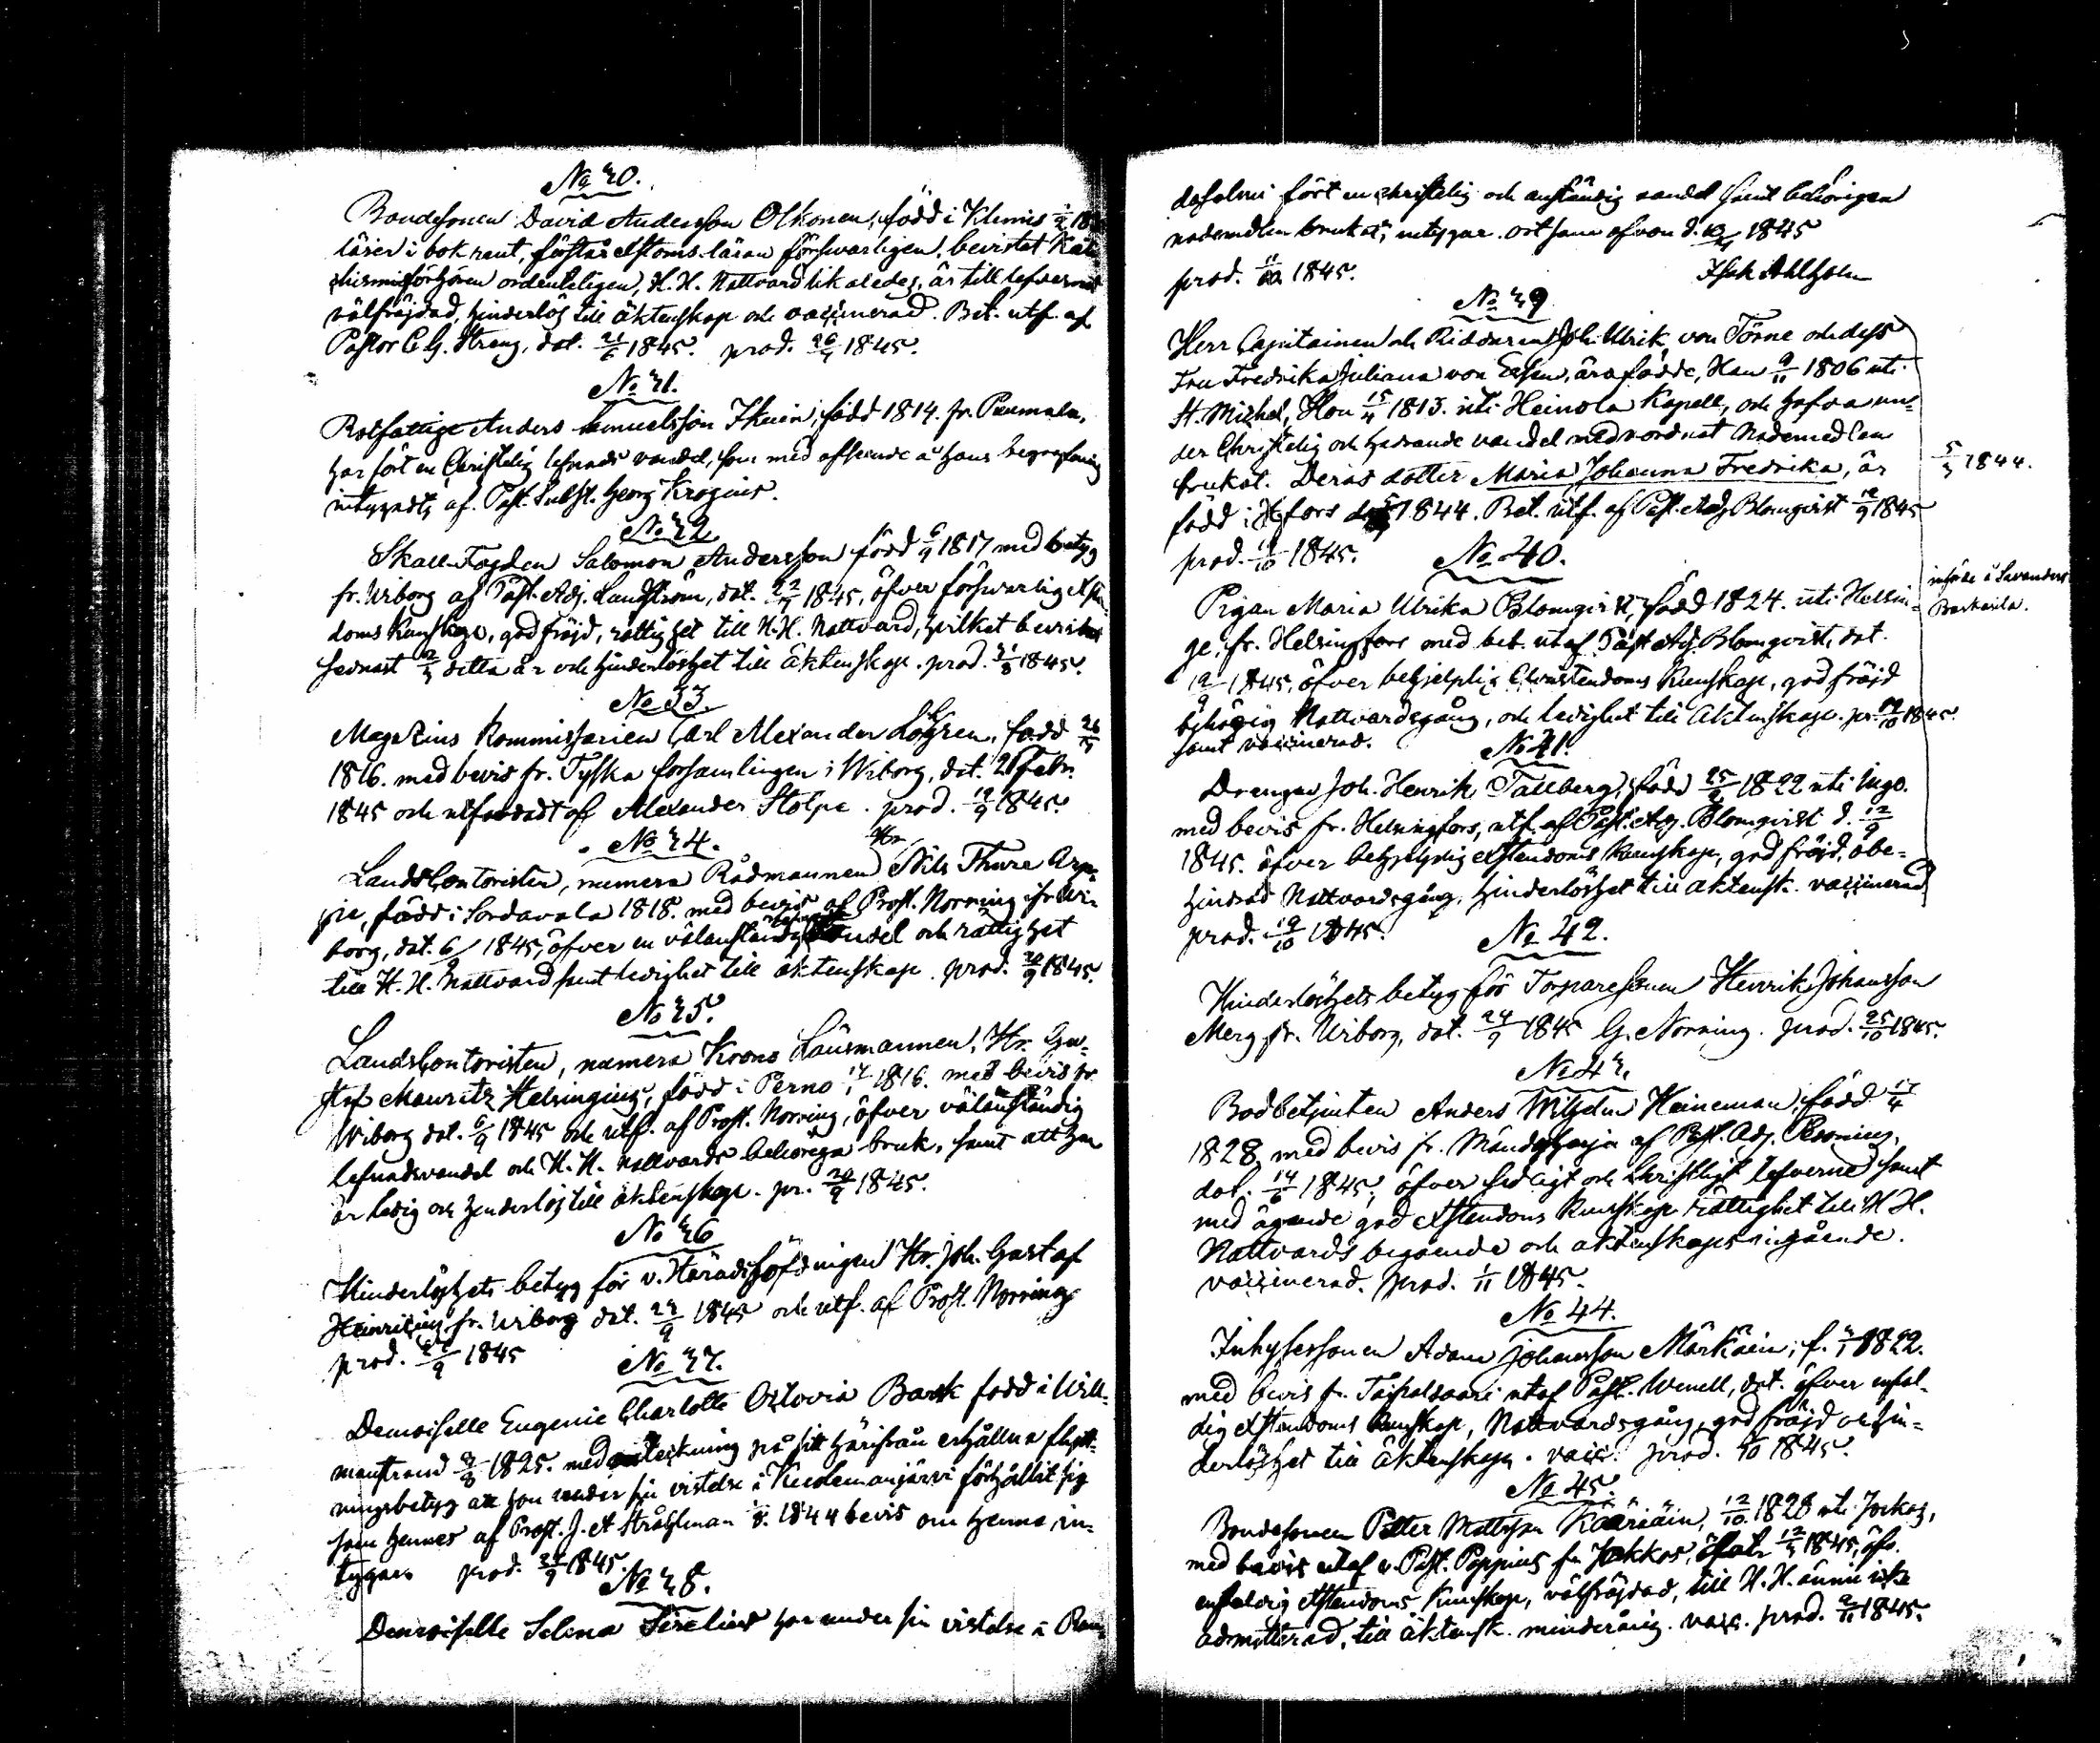 No 30.
Bondesonen David Andersson Olkonen, född i Klemis
läser i bok rent, förstår χstoms läran försvarligen, bevistat Kate-
chismiförhören ordenteligen, H. H. Nattvard likaledes, är till lefvernet
välfräjdad, hinderlös till äktenskap och vaccinerad. Bet. utf. af
Pastor C. G. Streng, dat. 21/6 1845. prod. 26/7 1845.
No 31.
Rotfattige Anders Samuelsson Ikäin, född 1814. fr. Puumala,
har fört en Christelig lefnads vandel, som med afseende å hans begrafning
intygadts af Past. Subst. Georg Krogius.
No 32
Skall-Fogden Salomon Andersson född 6/9 1817 med betyg
fr. Wiborg af Past. Adj. Landström, dat. 22/7 1845, öfver försvarlig χsten-
doms kunskap, god fräjd, rättighet till H. H. Nattvard, hvilket bevistats
sednast detta år och hinderlöshet till äktenskap. prod. 31/8 1845.
No 33.
Magazins Kommissarien Carl Alexander Löfgren, född
1816. med bevis fr. Tyska församlingen i Wiborg, dat. 21 Febr.
1845 och utfärdadt af Alexander Stolpe. prod. 19/9 1845.
No 34.
Hr
Landscontoristen, numera Rådmannen Nils Thure Arp-
pe, född i Sordavala 1818. med bevis af Prost. Norring fr. Wi-
borg, dat. 6/9 1845, öfver en välanständig vandel och rättighet
till H. H. Nattvard samt ledighet till äktenskap. prod. 20/9 1845.
No 35.
Landscontoristen, numera Krono Länsmannen, Hr. Gu-
staf Mauritz Helsingius, född i Perno 1816. med bevis fr.
Wiborg dat. 6/9 1845 och utf. af Prost. Norring, öfver välanständig
lefnadsvandel och H. H. nattvards behöriga bruk, samt att han
är ledig och hinderlös till äktenskap. pr. 20/9 1845.
No 36
Hinderlöshets betyg för v. Häradshöfdingen Hr. Joh. Gustaf
Heinricius fr. Wiborg dat. 23/9 1845 och utf. af Prost. Norring
prod. 1845
No 37.
Demoiselle Eugenie Charlotte Octovia Barck född i Will-
manstrand 1825. med teckning på sitt härifrån erhållna flytt-
ningsbetyg att hon under sin vistelse i Kuolemanjärvi förhållit sig
som hennes af Prost. J. A Stråhlman 1844 bevis om henne in-
tygar. prod. 1845.
No 38.
Demoiselle Selma Sirelius har under sin vistelse i Ran-
dasalmi fört en christelig och anständig vandel samt behörigen
nademedlen brukat; intygar ort som ofvan d. 1845
prod. 11/10 1845. Isak Ahlholm
No 39
Herr Capitainen och Riddaren Joh. Ulrik von Törne och dess
Fru Fredrika Juliana von Essen, äro födde, Han 9/11 1806 uti
St. Michel, Hon 15/4 1813. uti Heinola Kapell, och hafva un-
der Christelig och hedrande vandel medvordnat Nådemedlen
brukat. Deras dotter Maria Johanna Fredrika, är
5/3 1844.
född i H:fors 1844. Bet. utf. af Past. Adj. Blomqvist 12/9 1845
prod. 1845.
No 40.
Pigan Maria Ulrika Blomqvist, född 1824. uti Helsin-
införde i Savanders
Boskarla.
ge, fr. Helsingfors med bet. utaf Past. Adj. Blomqvist, dat.
12/9 1845, öfver behjelplig Christendoms Kunskap, god fräjd
behörig Nattvardsgång, och ledighet till äktenskap. pr. 1845.
samt vaccinerad.
No 41.
Drengen Joh. Henrik Tallberg, född 1822 uti Ingo.
med bevis fr. Helsingfors, utf. af Past. Adj. Blomqvist d. 12/9
1845. öfver behjelplig χstendoms kunskap, god fräjd, obe-
hindrad Nattvardsgång, hinderlöshet till äktensk. vaccinerad
prod. 19/10 1845.
No 42.
Hinderlöshets betyg för Torparesonen Henrik Johansson
Merg fr. Wiborg, dat. 24/9 1845 G. Norring. prod. 25/10 1845.
No 43.
Bodbetjenten Anders Wilhelm Heineman född 17/4
1828, med bevis fr. Mändyharju af Past. Adj. Peronius,
dat. 14/6 1845, öfver sedligt och Christligt lefverne samt
med ägande god χstendoms Kunskap rättighet till H H.
Nattvards begående och äktenskaps ingående.
vaccinerad. prod. 1/11 1845.
No 44.
Inhysessonen Adam Johansson Märkäin, f. 1822.
med bevis fr. Taipalsaari utaf Past. Wenell, dat. öfver enfal-
dig χstendoms kunskap, Nattvardsgång, god fräjd och hin-
derlöshet till äktenskap. vacc. prod. 1845.
No 45.
Bondesonen Petter Mattsson Kääriäin, 12/10 1828 uti Jockas,
med bevis utaf v. Past. Poppius fr. Jokkas, 1845, öfv.
enfaldig χstendoms Kunskap, välfräjdad, till H. H. ännu icke
admitterad, till äktensk. minderårig. vacc. prod. 1845.